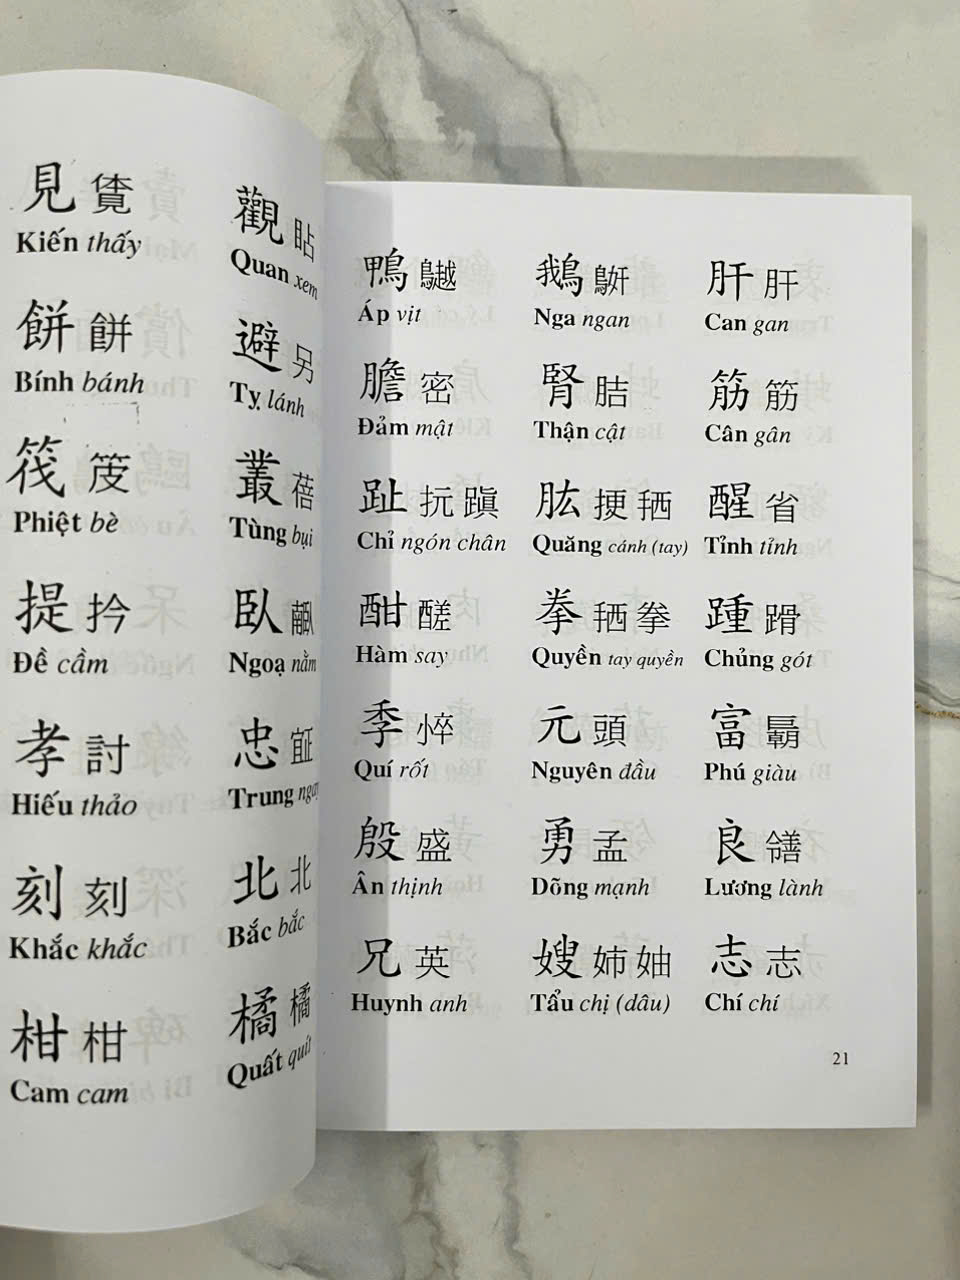 見 覓 觀 貼
Kiến thấy Quan xem
餅 餅 避 另
Bính bánh Tỵ lánh
筏 叢 蓓
Phiệt bè Tùng bụi
提 扲 臥
Đề cầm Ngoạ nằm
孝 討 忠
Hiếu thảo Trung ngay
刻 刻 北 北
Khắc khắc Bắc bắc
柑 柑 橘 橘
Cam cam Quất quít
鴨 鵝 肝 肝
Áp vịt Nga ngan Can gan
膽 密 腎 筋 筋
Đảm mật Thận cật Cân gân
趾 抏 蹎 肱 挭 醒 省
Chỉ ngón chân Quăng cánh (tay) Tỉnh tỉnh
酣 醝 拳 拳 踵
Hàm say Quyền tay quyền Chủng gót
季 悴 元 頭 富
Quí rốt Nguyên đầu Phú giàu
殷 盛 勇 孟 良
Ân thịnh Dõng mạnh Lương lành
兄 英 嫂 姉 妯 志 志
Huynh anh Tẩu chị (dâu) Chí chí
21